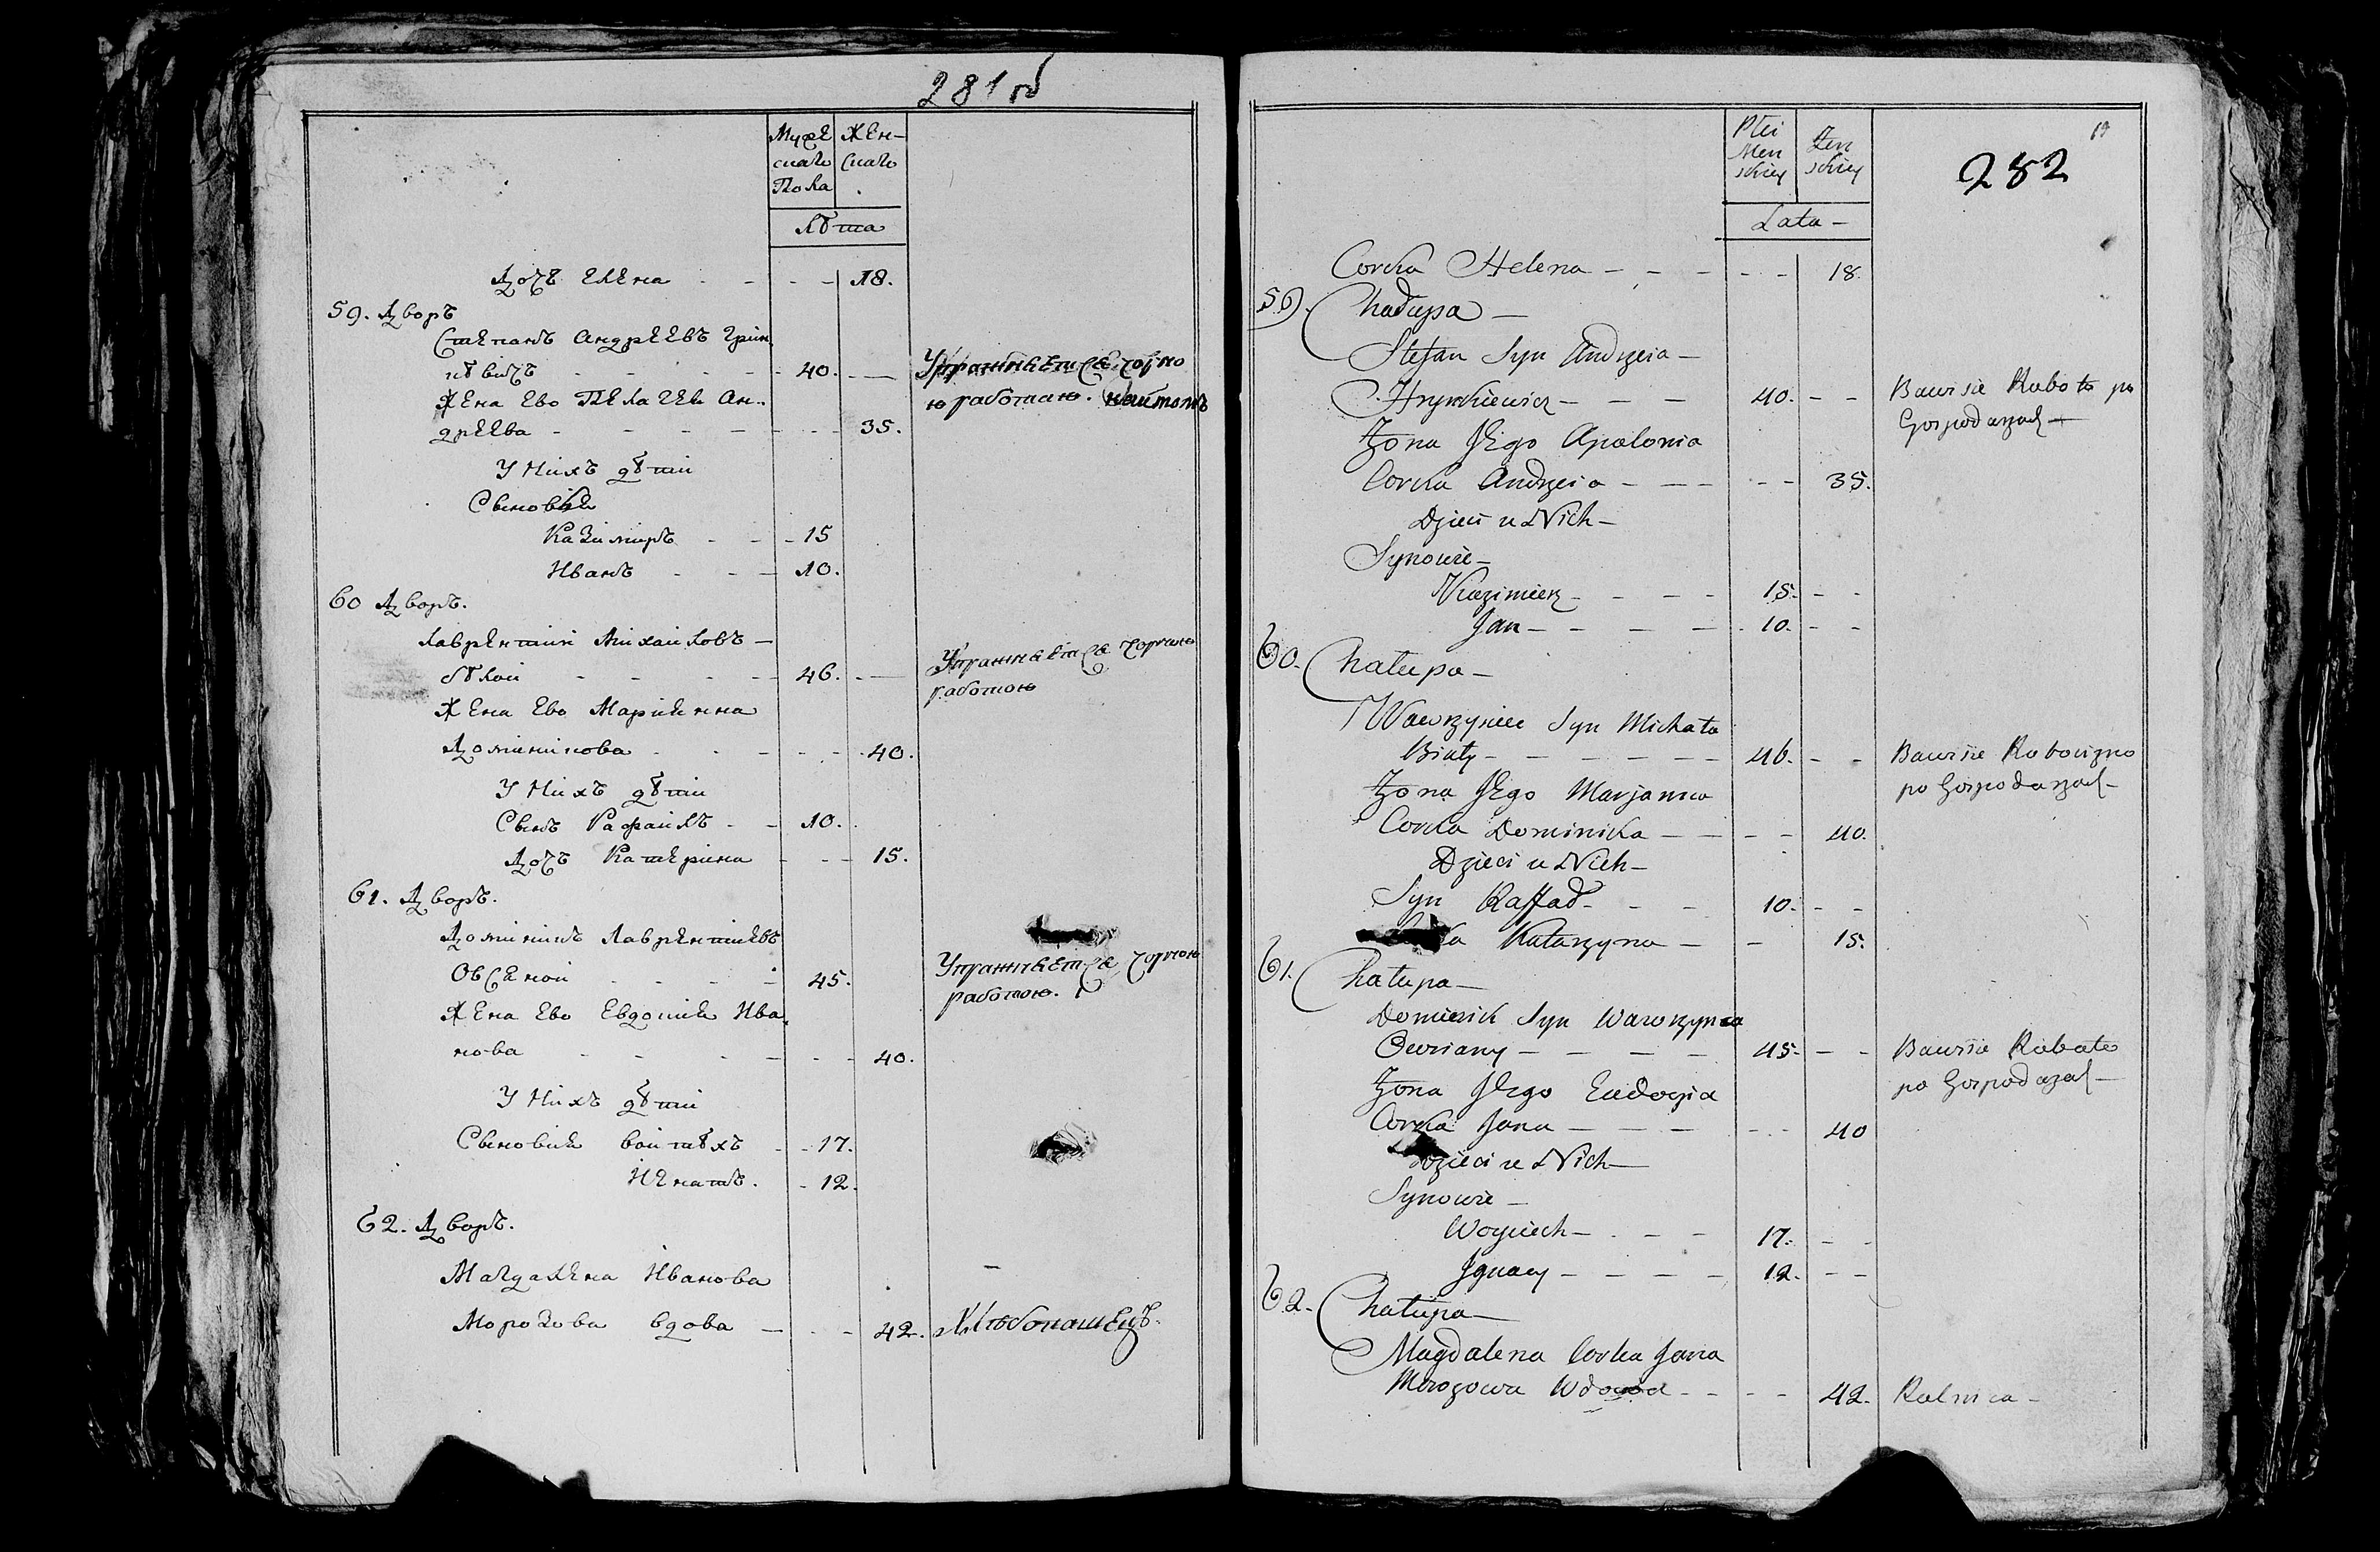 281 об
Муже Жен-
скаго скаго
Пола
лѣта
Дочь Елена - - - 18.
59. Дворъ
Степанъ Андреевъ Грин
кѣвичъ - - - - 40. -
Упражняется чорно
ю работаю.
Жена Ево Пелагея Ан-
дреева - - - - - 35.
У Нихъ дѣти
Сыновья
Казимиръ - - - 15
Иванъ - - - 10.
60 Дворъ.
Лаврентий Михаиловъ -
бѣлои - - - - 46. -
Упражняется чорною
работою
Жена Ево Марианна
Доминикова - - - - - 40.
У Нихъ дѣти
Сынъ Рафаилъ - - 10.
Дочь Катерина - - - 15.
61. Дворъ.
Доминикъ Лаврентиевъ
Овсяной - - - - 45.
Упражняется чорною
работою.
Жена Ево Евдокия Ива
нова - - - - - - 40.
У Нихъ дѣти
Сыновия Воитѣхъ - - 17.
Игнатъ. - 12.
62. Дворъ.
Магдалена Иванова
Морозова вдова - - - 42. Хлѣбопашецъ.
Płci Żen
Men skiey
skiey
Lata -
19
282
Corka Helena - - - - - 18.
59. Chałupa -
Stefan Syn Andrzeia -
Hrynkiewicz - - - 40. - - Bawi sie Robotą po
Gospodarzach -
Żona Jego Apolonia
Corka Andrzeia - - - - - 35.
Dzieci u Nich -
Synowie -
Kazimierz - - - - 15. - -
Jan - - - - - 10. - -
60. Chałupa -
Wawrzyniec Syn Michała
Biały - - - - - - 46. - - Bawi sie Robocizno
po Gospodarzach -
Żona Jego Marjanna
Corka Dominika - - - - 40.
Dzieci u Nich -
Syn Raffał - - - 10. - -
ka Katarzyna - - 15.
61. Chałupa -
Dominik Syn Wawrzynca
Owsiany - - - - 45. - - Bawi sie Robotą
po Gospodarzach -
Żona Jego Eudoxia
Corka Jana - - - - - 40
Dzieci u Nich -
Synowie -
Woyciech - - - 17. - -
Ignacy - - - - 12. - -
62. Chałupa -
Magdalena Corka Jana
Morozowa Wdowa - - - - 42. Rolnica -